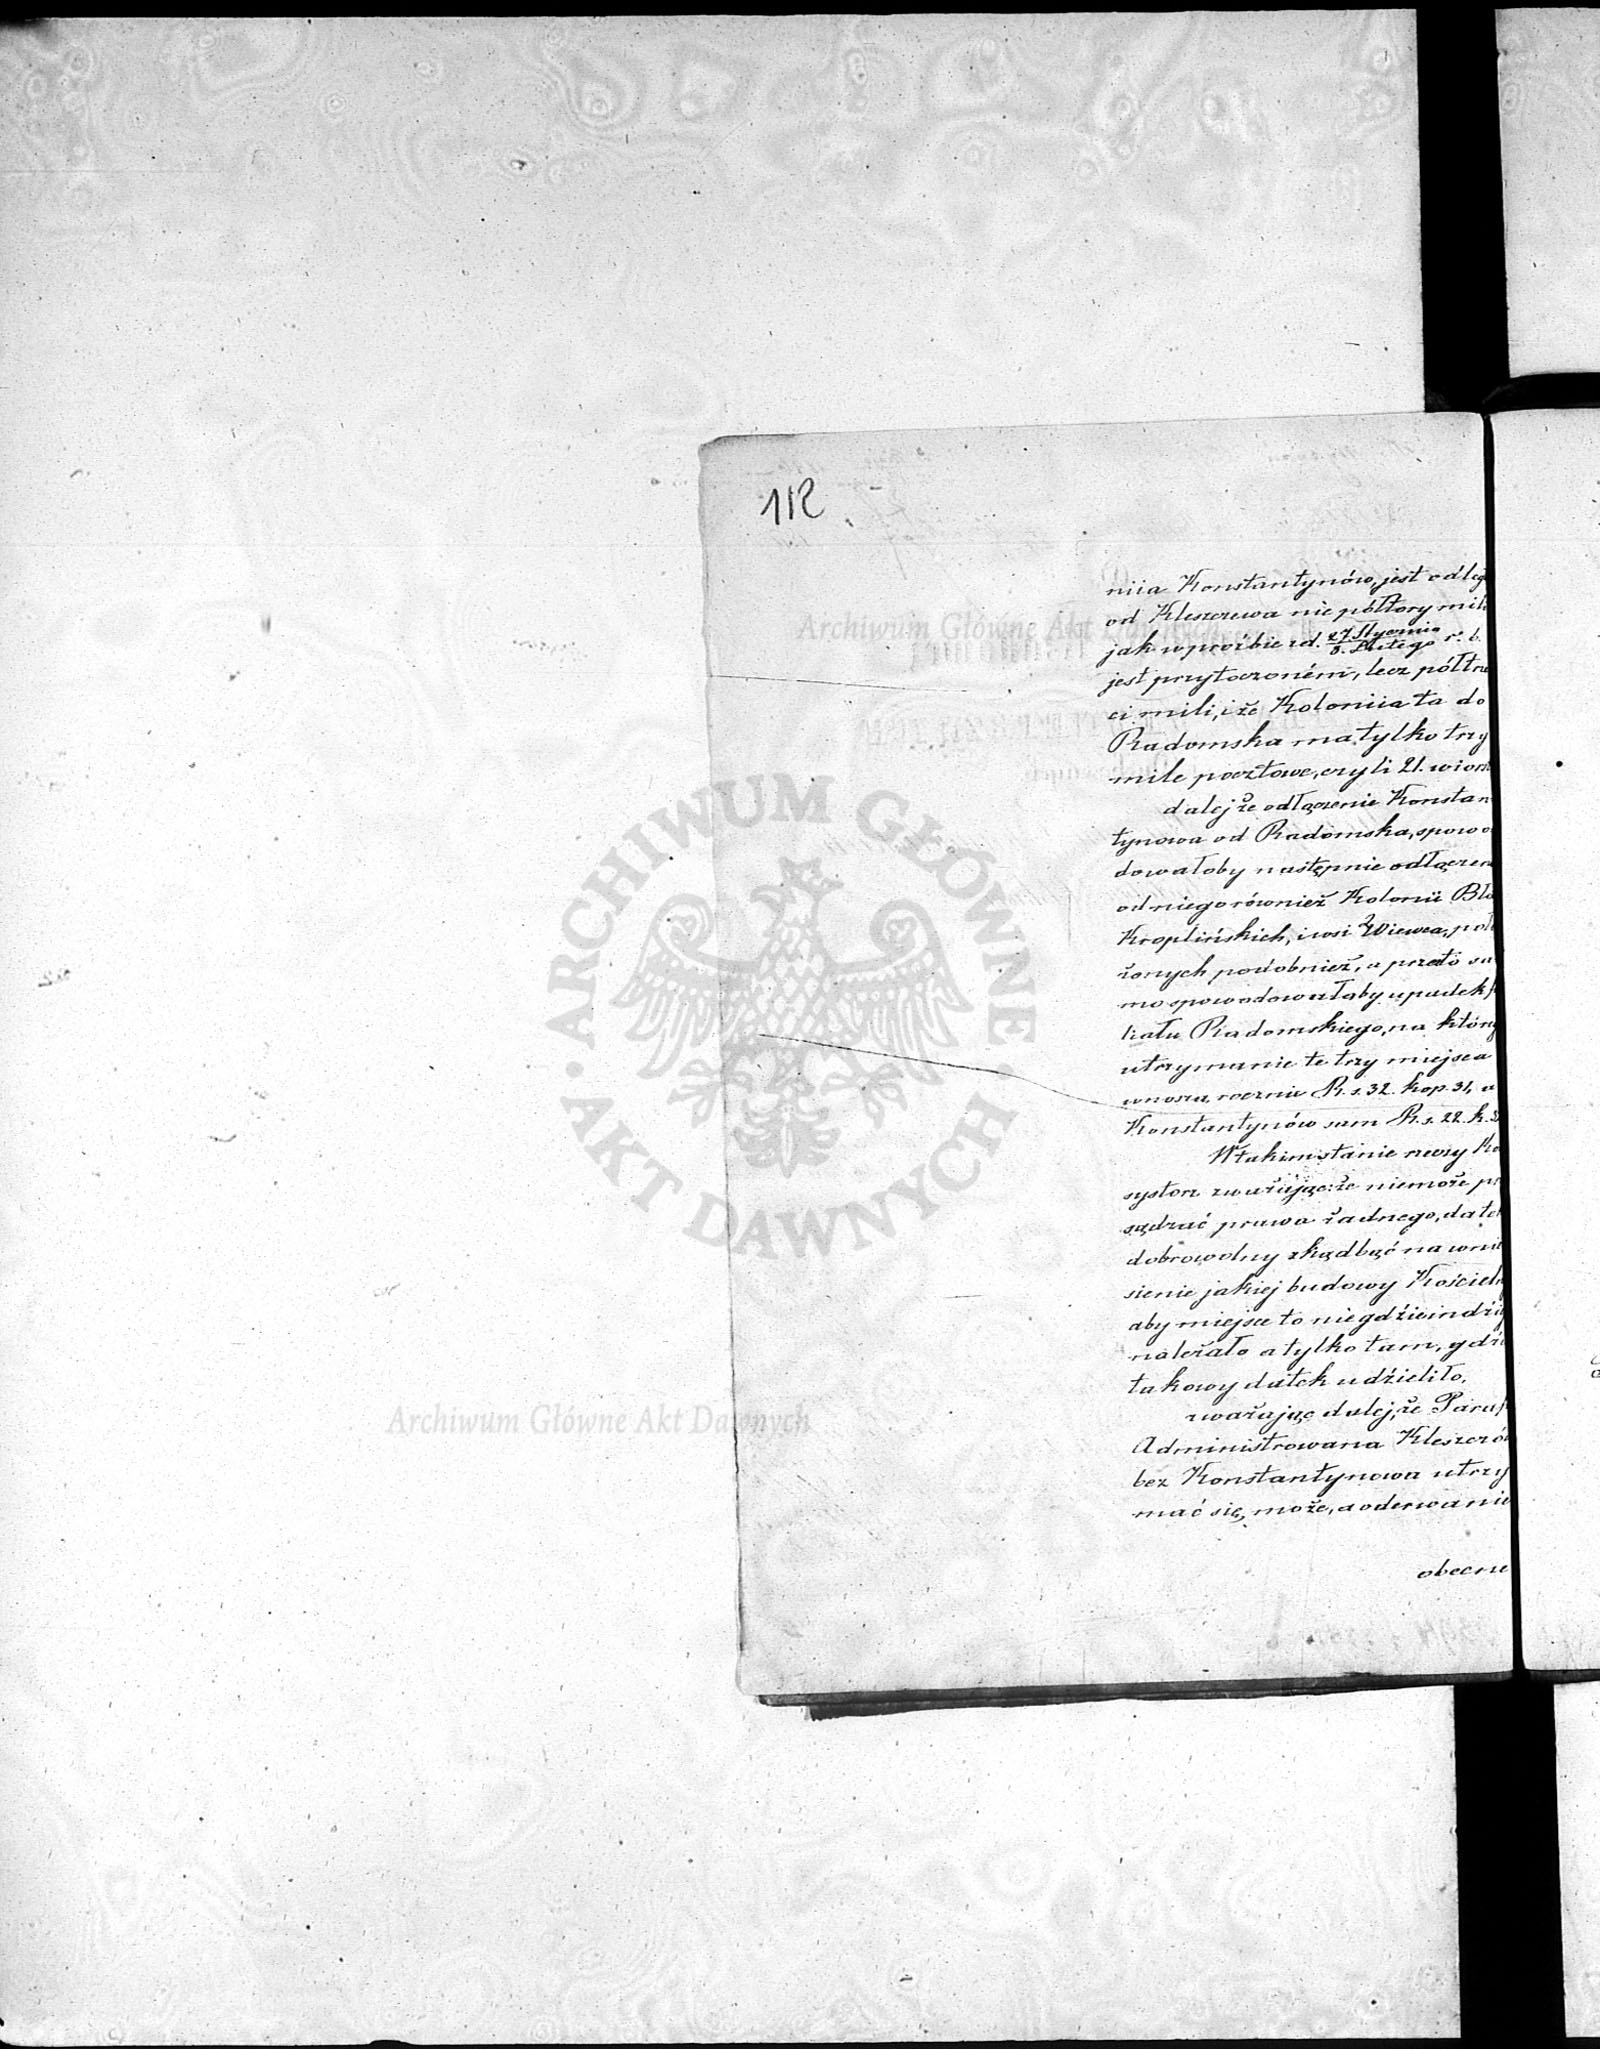 112
niia Konstantynów, jest odleg
od Kleszczewa nie półtory mili
jak w prośbie z d. 27 Stycznia / 8. Lutego r. b.
jest przytoczoném, lecz półtrze
ci mili, i że Koloniia ta do
Radomska ma tylko trzy
mile pocztowe, czyli 21. wiorst
dalej że odłączenie Konstan
tynowa od Radomska, spowo
dowałoby następnie odłączen
od niego również Kolonii Bła
Kroplińskich, i wsi Wiewca, poło
żonych podobnież, a przeto sa
mo spowodowałaby upadek fi
liału Radomskiego, na który
utrzymanie te trzy miejsca
wnoszą rocznie R. s. 32. kop. 31, a
Konstantynów sam R. s. 22. k.
W takim stanie rzeczy Ko
systorz zważając: że niemoże pr
sądzać prawa żadnego, datek
dobrowolny zkądbąć na wnie
sienie jakiej budowy Kościeln
aby miejsce to niegdzieindzie
należało a tylko tam, gdzie
takowy datek udzieliło,
zważając dalej, że Paraf
Administrowana Kleszczów
bez Konstantynowa utrzy
mać się może, a oderwanie
obecne
Archiwum Główne Akt Dawnych
ARCHIWUM GŁÓWNE
AKT DAWNYCH
Archiwum Główne Akt Dawnych